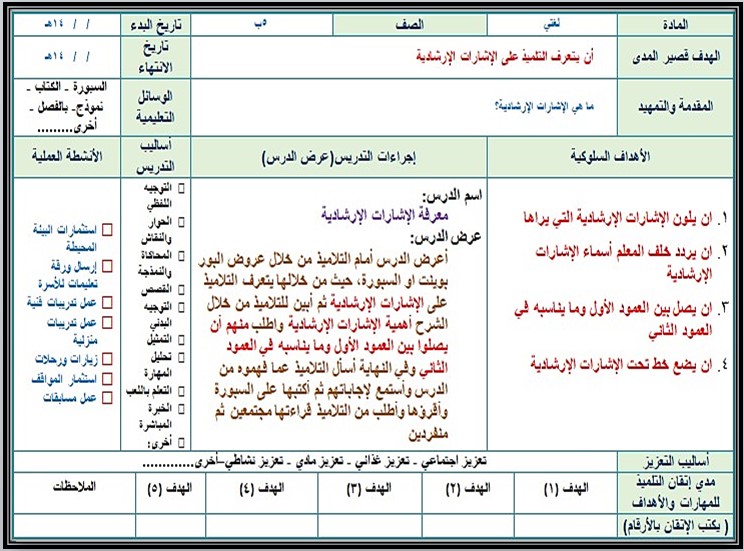 المادة لغتي الصف ٥ب تاريخ البدء / / ١٤هـ
الهدف قصير المدى أن يتعرف التلميذ على الإشارات الإرشادية تاريخ الانتهاء / / ١٤هـ
المقدمة والتمهيد ما هي الإشارات الإرشادية؟ الوسائل التعليمية السبورة - الكتاب - نموذج- بالفصل - أخرى..........
الأهداف السلوكية إجراءات التدريس(عرض الدرس) أساليب التدريس الأنشطة العملية
١. ان يلون الإشارات الإرشادية التي يراها
٢. ان يردد خلف المعلم أسماء الإشارات
الإرشادية
٣. ان يصل بين العمود الأول وما يناسبه في
العمود الثاني
٤. ان يضع خط تحت الإشارات الإرشادية
اسم الدرس:
معرفة الإشارات الإرشادية
عرض الدرس:
أعرض الدرس أمام التلاميذ من خلال عروض البور
بوينت او السبورة، حيث من خلالها يتعرف التلاميذ
على الإشارات الإرشادية ثم أبين للتلاميذ من خلال
الشرح أهمية الإشارات الإرشادية واطلب منهم أن
يصلوا بين العمود الأول وما يناسبه في العمود
الثاني وفي النهاية أسأل التلاميذ عما فهموه من
الدرس وأستمع لإجاباتهم ثم أكتبها على السبورة
وأقرؤها وأطلب من التلاميذ قراءتها مجتمعين ثم
منفردين
التوجيه
اللفظي
الحوار
والنقاش
المحاكاة
والنمذجة
القصص
التوجيه
البدني
التمثيل
تحليل
المهارة
التعلم باللعب
الخبرة
المباشرة
أخرى:
استثمارات البيئة
المحيطة
إرسال ورقة
تعليمات للأسرة
عمل تدريبات فنية
عمل تدريبات
منزلية
زيارات ورحلات
استثمار المواقف
عمل مسابقات
أساليب التعزيز تعزيز اجتماعي - تعزيز غذائي - تعزيز مادي - تعزيز نشاطي–أخرى..............
مدي إتقان التلميذ للمهارات والأهداف الهدف (١) الهدف (٢) الهدف (٣) الهدف (٤) الهدف (٥) الملاحظات
( يكتب الإتقان بالأرقام)